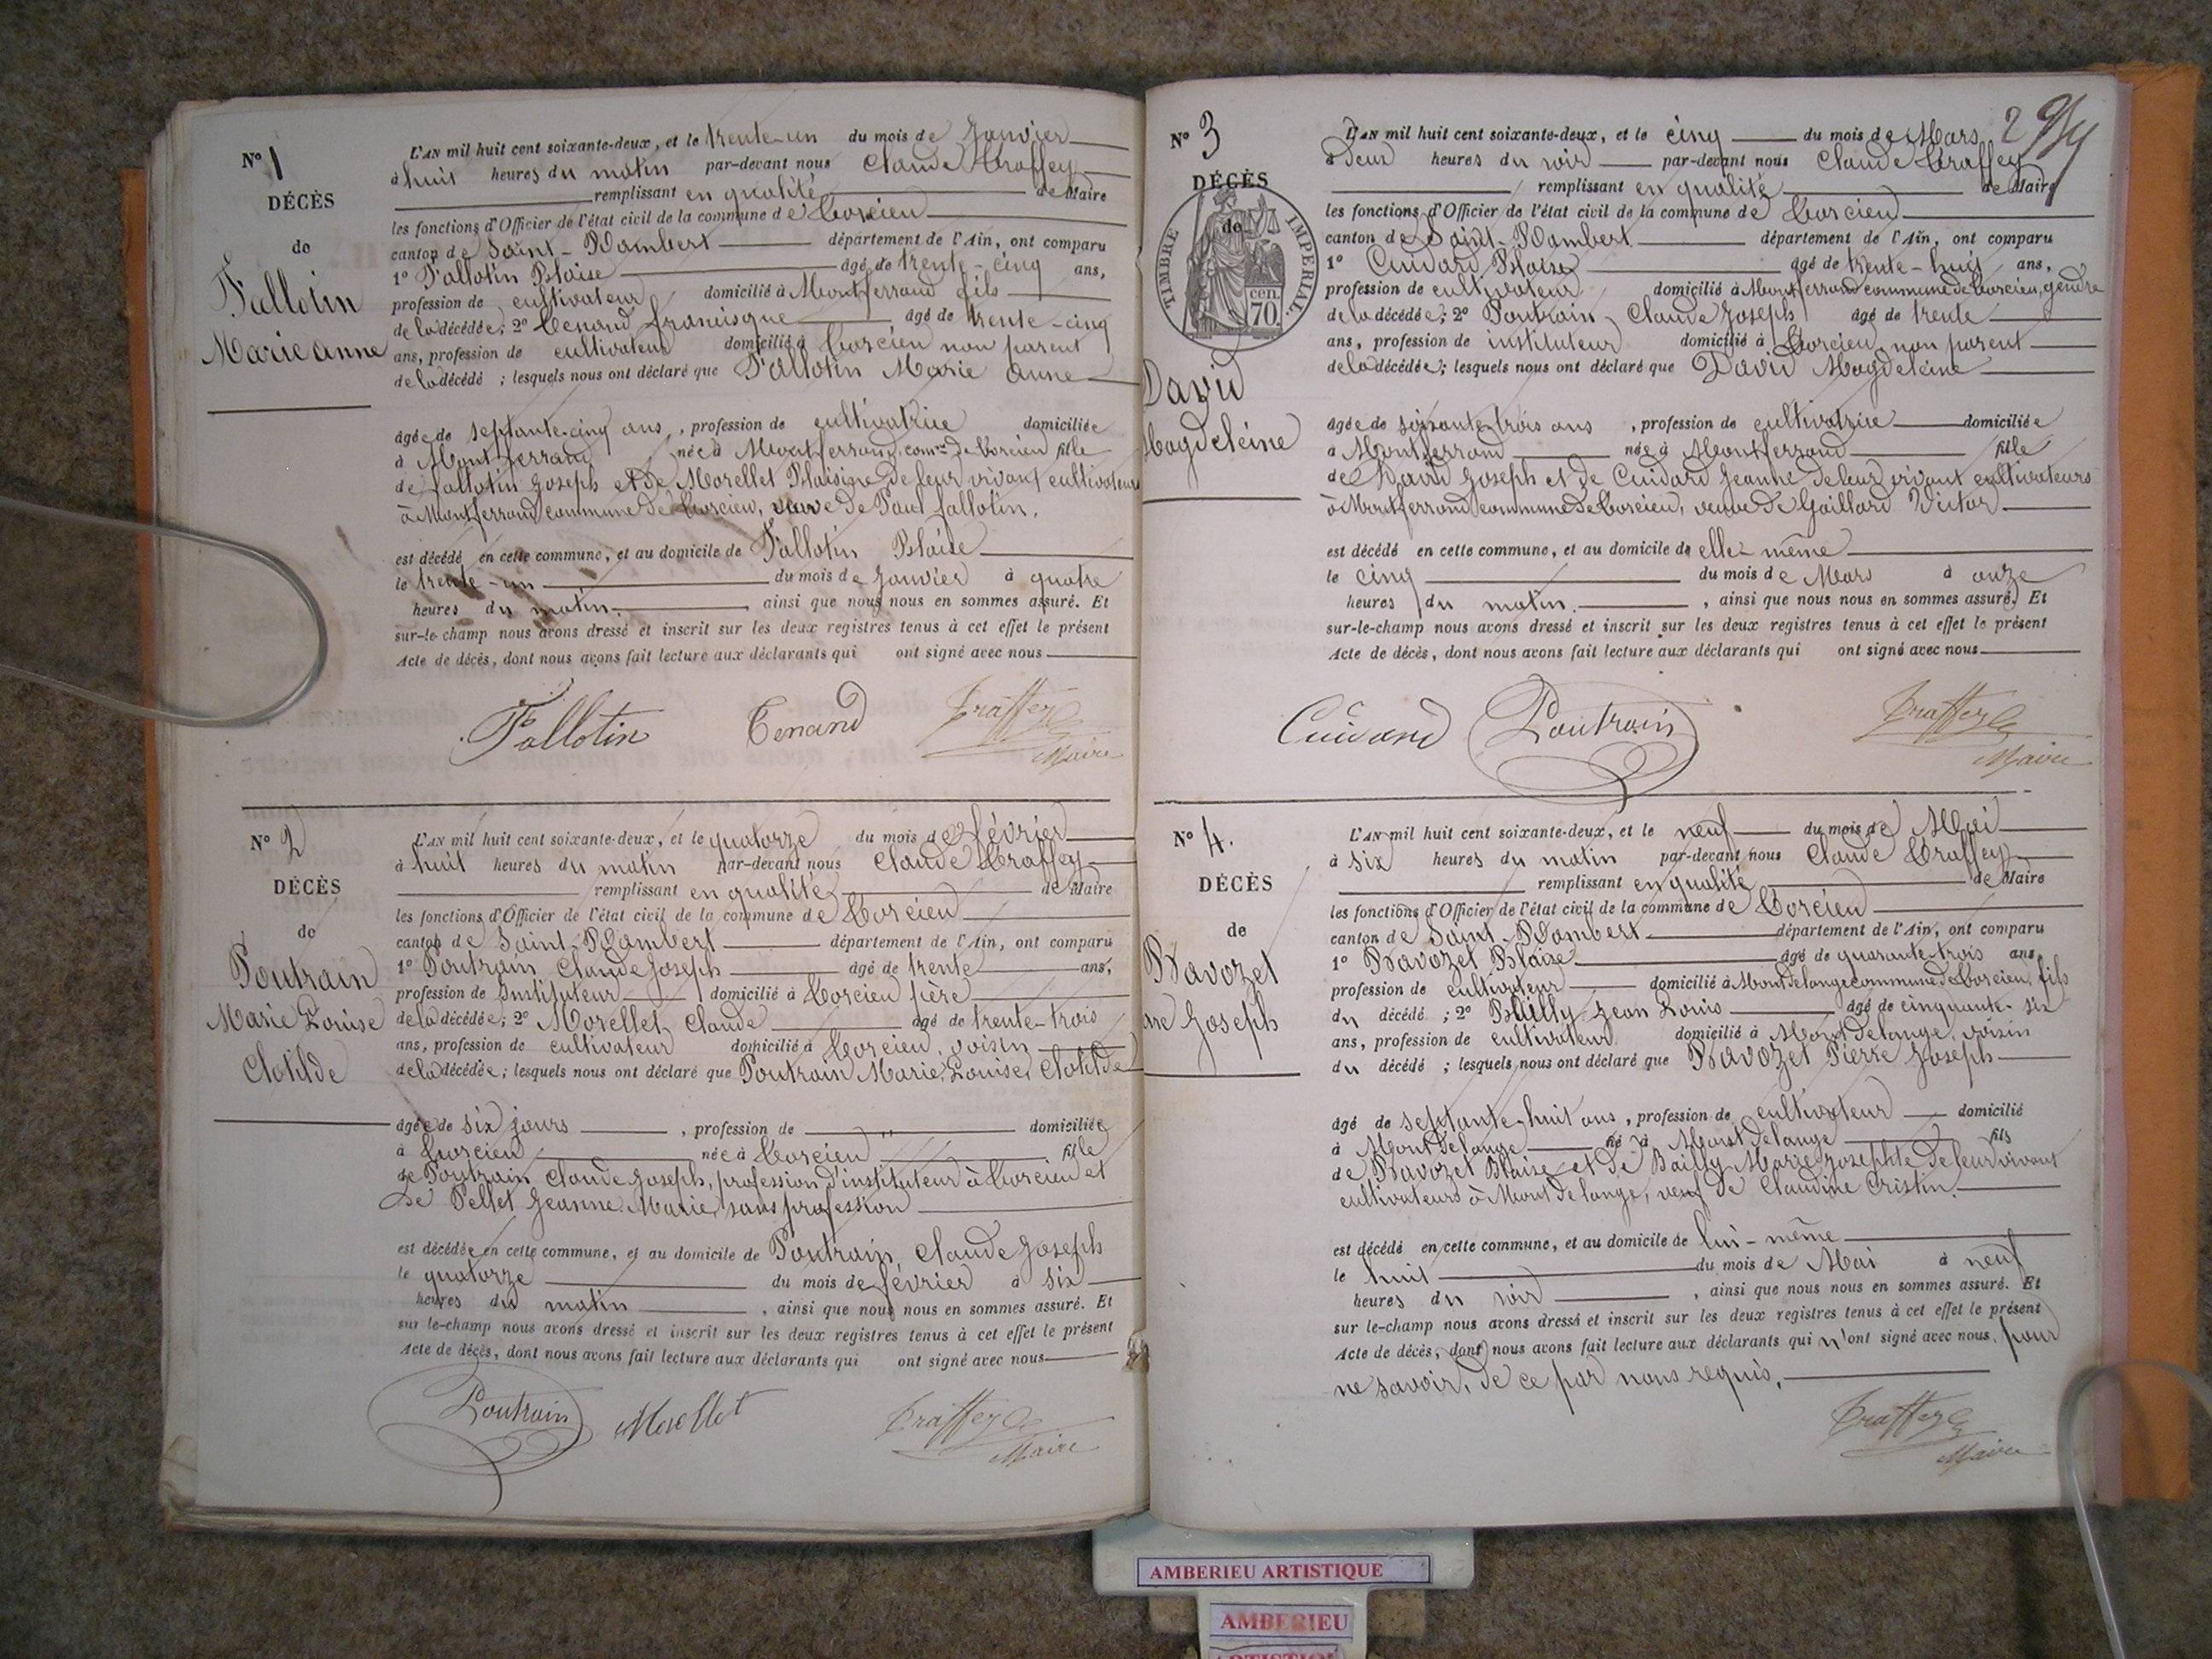 N° 1
DÉCÈS
de
Fallotin
Marie anne
L'AN mil huit cent soixante-deux, et le trente-un du mois de Janvier
à huit heures du matin par-devant nous Claude Traffey
remplissant en qualité de Maire
les fonctions d'Officier de l'état civil de la commune de Torcieu
canton de Saint-Rambert département de l'Ain, ont comparu
1° Fallotin Blaise âgé de trente-cinq ans,
profession de cultivateur domicilié à Montferrand fils
de la décédée; 2° Tenand francisque âgé de trente-cinq
ans, profession de cultivateur domicilié à Torcieu non parent
de la décédé ; lesquels nous ont déclaré que Fallotin Marie anne
âgée de septante-cinq ans, profession de cultivatrice domiciliée
à Montferrand née à Montferrand, comne de Torcieu fille
de fallotin Joseph et de Morellet Blaisine de leur vivant cultivateurs
à Montferrand commune de Torcieu, veuve de Paul fallotin.
est décédé en cette commune, et au domicile de Fallotin Blaise
le trente-un du mois de Janvier à quatre
heures du matin, ainsi que nous nous en sommes assuré. Et
sur-le-champ nous avons dressé et inscrit sur les deux registres tenus à cet effet le présent
Acte de décès, dont nous avons fait lecture aux déclarants qui ont signé avec nous
Fallotin Tenand Traffey
Maire
N° 2
DÉCÈS
de
Poutrain
Marie Louise
Clotilde
L'AN mil huit cent soixante-deux, et le quatorze du mois de février
à huit heures du matin par-devant nous Claude Traffey
remplissant en qualité de Maire
les fonctions d'Officier de l'état civil de la commune de Torcieu
canton de Saint-Rambert département de l'Ain, ont comparu
1° Poutrain Claude Joseph âgé de trente ans,
profession de Instituteur domicilié à Torcieu père
de la décédée; 2° Morellet Claude âgé de trente-trois
ans, profession de cultivateur domicilié à Torcieu, voisin
de la décédée; lesquels nous ont déclaré que Poutrain Marie, Louise, Clotilde
âgée de six jours, profession de " domiciliée
à Torcieu née à Torcieu fille
de Poutrain Claude Joseph, profession d'instituteur à Torcieu et
de Pellet Jeanne Marie, sans profession
est décédée en cette commune, et au domicile de Poutrain Claude Joseph
le quatorze du mois de février à six
heures du matin, ainsi que nous nous en sommes assuré. Et
sur le-champ nous avons dressé et inscrit sur les deux registres tenus à cet effet le présent
Acte de décès, dont nous avons fait lecture aux déclarants qui ont signé avec nous
Poutrain Morellet Traffey
Maire
2
N° 3
DÉCÈS
de
TIMBRE IMPERIAL
70 cen.
David
Magdeleine
L'AN mil huit cent soixante-deux, et le cinq du mois de Mars
à Deux heures du soir par-devant nous Claude Traffey
remplissant en qualité de Maire
les fonctions d'Officier de l'état civil de la commune de Torcieu
canton de Saint-Rambert département de l'Ain, ont comparu
1° Cuidard Blaise âgé de trente-huit ans,
profession de cultivateur domicilié à Montferrand commune de Torcieu, gendre
de la décédée; 2° Poutrain Claude Joseph âgé de trente
ans, profession de instituteur domicilié à Torcieu, non parent
de la décédée; lesquels nous ont déclaré que David Magdeleine
âgée de soixante-trois ans, profession de cultivatrice domiciliée
à Montferrand née à Montferrand fille
de David Joseph et de Cuidard Jeanne de leur vivant cultivateurs
à Montferrand commune de Torcieu, veuve de Gaillard Victor
est décédé en cette commune, et au domicile de elle-même
le cinq du mois de Mars à onze
heures du matin, ainsi que nous nous en sommes assuré. Et
sur-le-champ nous avons dressé et inscrit sur les deux registres tenus à cet effet le présent
Acte de décès, dont nous avons fait lecture aux déclarants qui ont signé avec nous
Cuidard Poutrain Traffey
Maire
N° 4.
DÉCÈS
de
Ravozet
Joseph
L'AN mil huit cent soixante-deux, et le neuf du mois de Mai
à six heures du matin par-devant nous Claude Traffey
remplissant en qualité de Maire
les fonctions d'Officier de l'état civil de la commune de Torcieu
canton de Saint-Rambert département de l'Ain, ont comparu
1° Ravozet Blaise âgé de quarante-trois ans,
profession de cultivateur domicilié à Mont de lange commune de Torcieu, fils
du décédé ; 2° Bailly Jean Louis âgé de cinquante-six
ans, profession de cultivateur domicilié à Mont de lange, voisin
du décédé ; lesquels nous ont déclaré que Ravozet Pierre Joseph
âgé de septante-huit ans, profession de cultivateur domicilié
à Mont de lange né à Mont de lange fils
de Ravozet Blaise et de Bailly Marie Josephte de leur vivant
cultivateurs à Mont de lange, veuf de Claudine Cristin.
est décédé en cette commune, et au domicile de lui-même
le huit du mois de Mai à neuf
heures du soir, ainsi que nous nous en sommes assuré. Et
sur le-champ nous avons dressé et inscrit sur les deux registres tenus à cet effet le présent
Acte de décès, dont nous avons fait lecture aux déclarants qui n'ont signé avec nous, pour
ne savoir, de ce par nous requis,
Traffey
Maire
AMBERIEU ARTISTIQUE
AMBERIEU
ARTISTIQUE